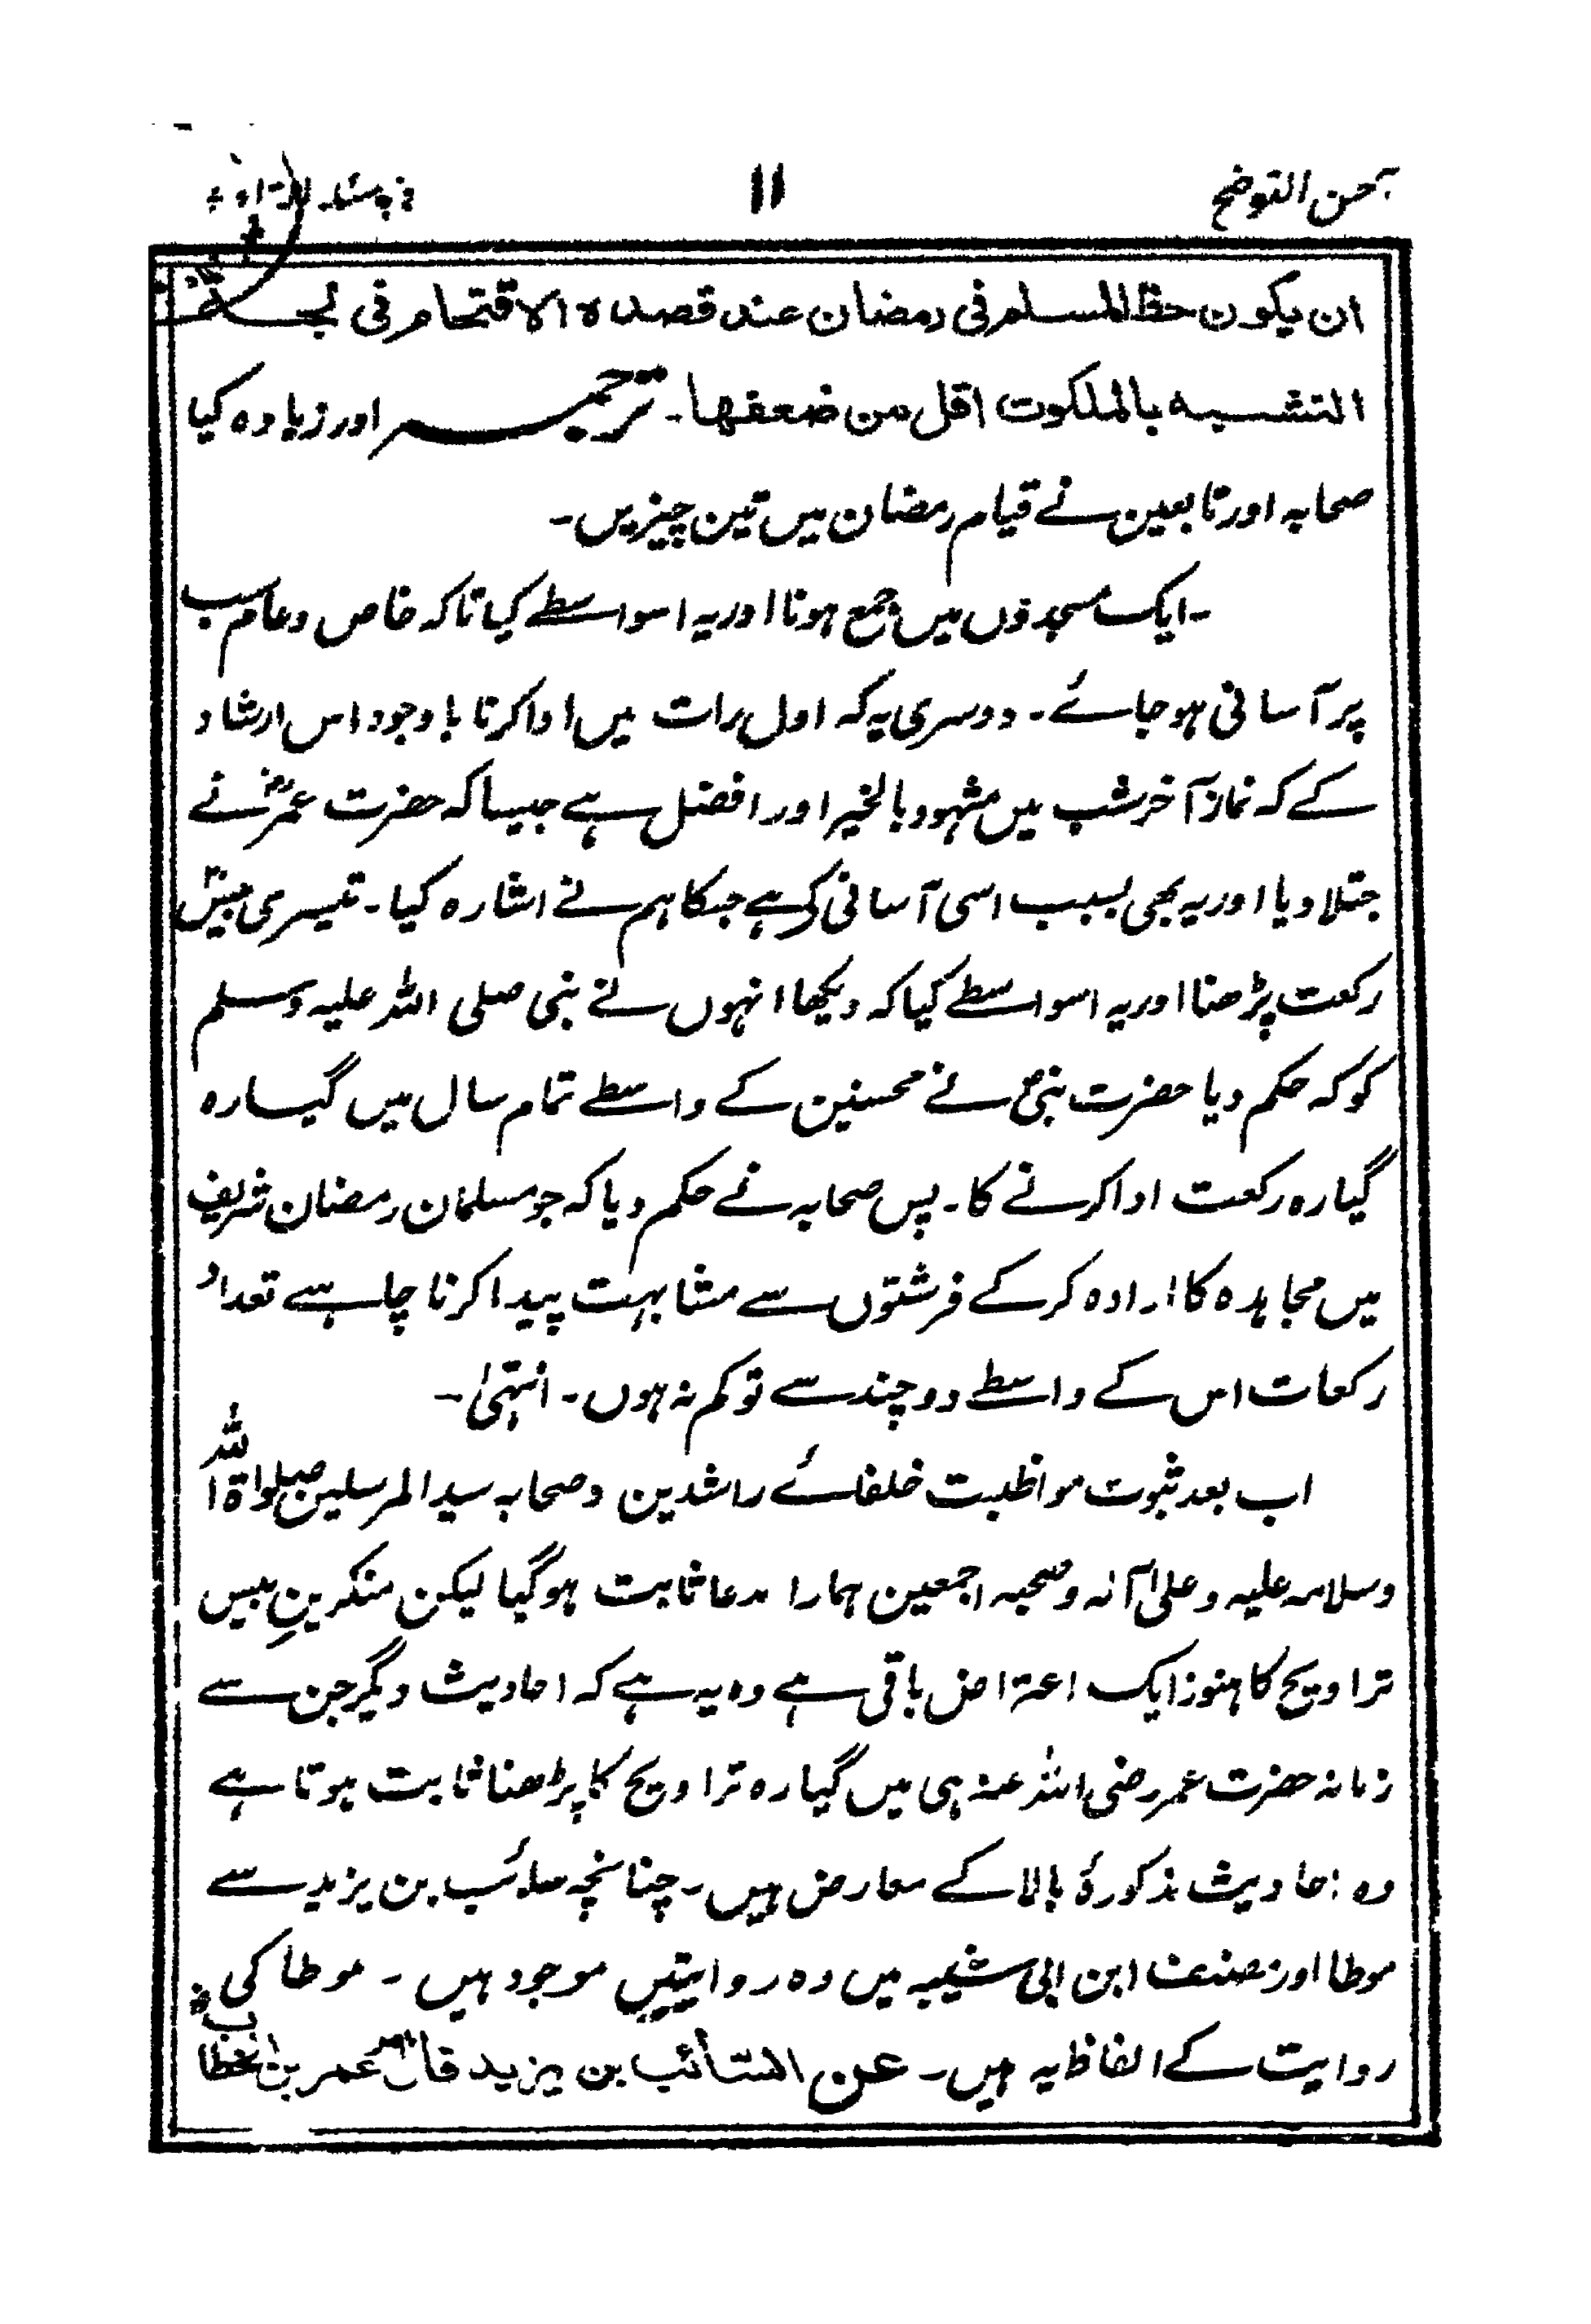 حسن التوضیح ۱۱ فی مسئلۃ التراویح
ان یکون حظ المسلم فی رمضان عند قصدہ الاقتحام فی لجۃ
التشبہ بالملکوت اقل من ضعفها۔ ترجمہ اور زیادہ کیا
صحابہ اور تابعین نے قیام رمضان میں تین چیزیں۔
۔ ایک مسجدوں میں جمع ہونا اور یہ اسواسطے کیا تاکہ خاص وعام سب
پر آسانی ہو جائے۔ دوسری یہ کہ اول رات میں ادا کرنا باوجود اس ارشاد
کے کہ نماز آخر شب میں مشہود بالخیر اور افضل ہے جیسا کہ حضرت عمرؓ نے
جتلا دیا اور یہ بھی بسبب اسی آسانی کی ہے جسکا ہم نے اشارہ کیا۔ تیسری بیس
رکعت پڑھنا اور یہ اسواسطے کیا کہ دیکھا انہوں نے نبی صلی اللہ علیہ وسلم
کو کہ حکم دیا حضرت نبیؐ نے محسنین کے واسطے تمام سال میں گیارہ
گیارہ رکعت ادا کرنے کا۔ پس صحابہ نے حکم دیا کہ جو مسلمان رمضان شریف
میں مجاہدہ کا ارادہ کرکے فرشتوں سے مشابہت پیدا کرنا چاہے تعداد
رکعات اس کے واسطے دو چند سے تو کم نہ ہوں۔ انتہیٰ۔
اب بعد ثبوت مواظبت خلفائے راشدین و صحابہ سید المرسلین صلواۃ اللہ
وسلامہ علیہ وعلیٰ آلہ وصحبہ اجمعین ہمارا مدعا ثابت ہوگیا لیکن منکرینِ بیس
تراویح کا ہنوز ایک اعتراض باقی ہے وہ یہ ہے کہ احادیث دیگر جن سے
زمانہ حضرت عمر رضی اللہ عنہ ہی میں گیارہ تراویح کا پڑھنا ثابت ہوتا ہے
وہ احادیث مذکورۂ بالا کے معارض ہیں۔ چنانچہ سائب بن یزید سے
موطا اور مصنف ابن ابی شیبہ میں وہ روایتیں موجود ہیں۔ موطا کی
روایت کے الفاظ یہ ہیں۔ عن السائب بن یزید قال امر عمر بن الخطاب